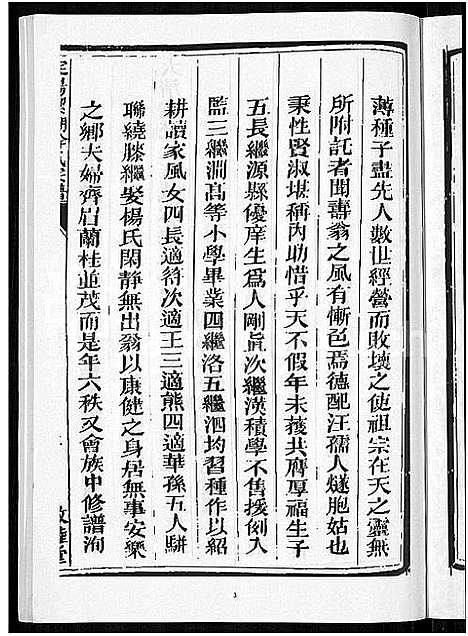 薄種子盡先人數世經營而敗壞之使祖宗在天之靈無
所附託者聞壽翁之風有慚色焉德配汪孺人燧胞姑也
秉性賢淑堪稱內助惜乎天不假年未獲共膺厚福生子
五長繼源縣優庠生爲人剛直次繼漢積學不售援例入
監三繼淵高等小學畢業四繼洛五繼泗均習種作以紹
耕讀家風女四長適待次適王三適熊四適華孫五人駢
聯繞膝繼娶楊氏閑靜無出翁以康健之身居無事安樂
之鄉夫婦齊眉蘭桂並茂而是年六秩又會族中修譜洵